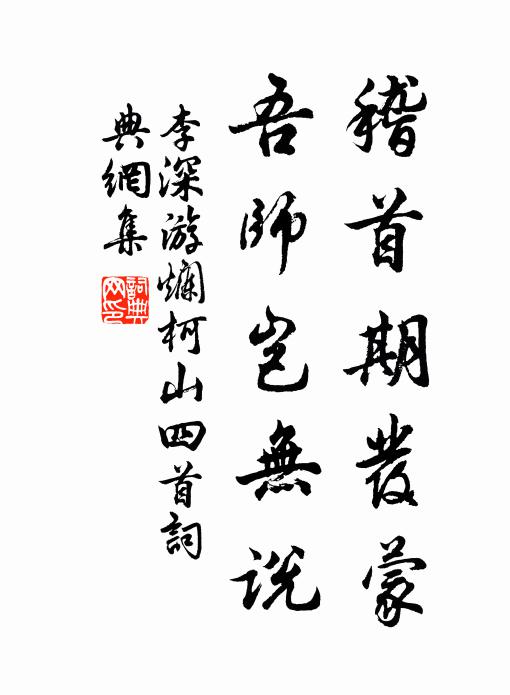 稽首期發蒙
吾師豈無說
李深游爛柯山四首詞
典網集
詞典網印